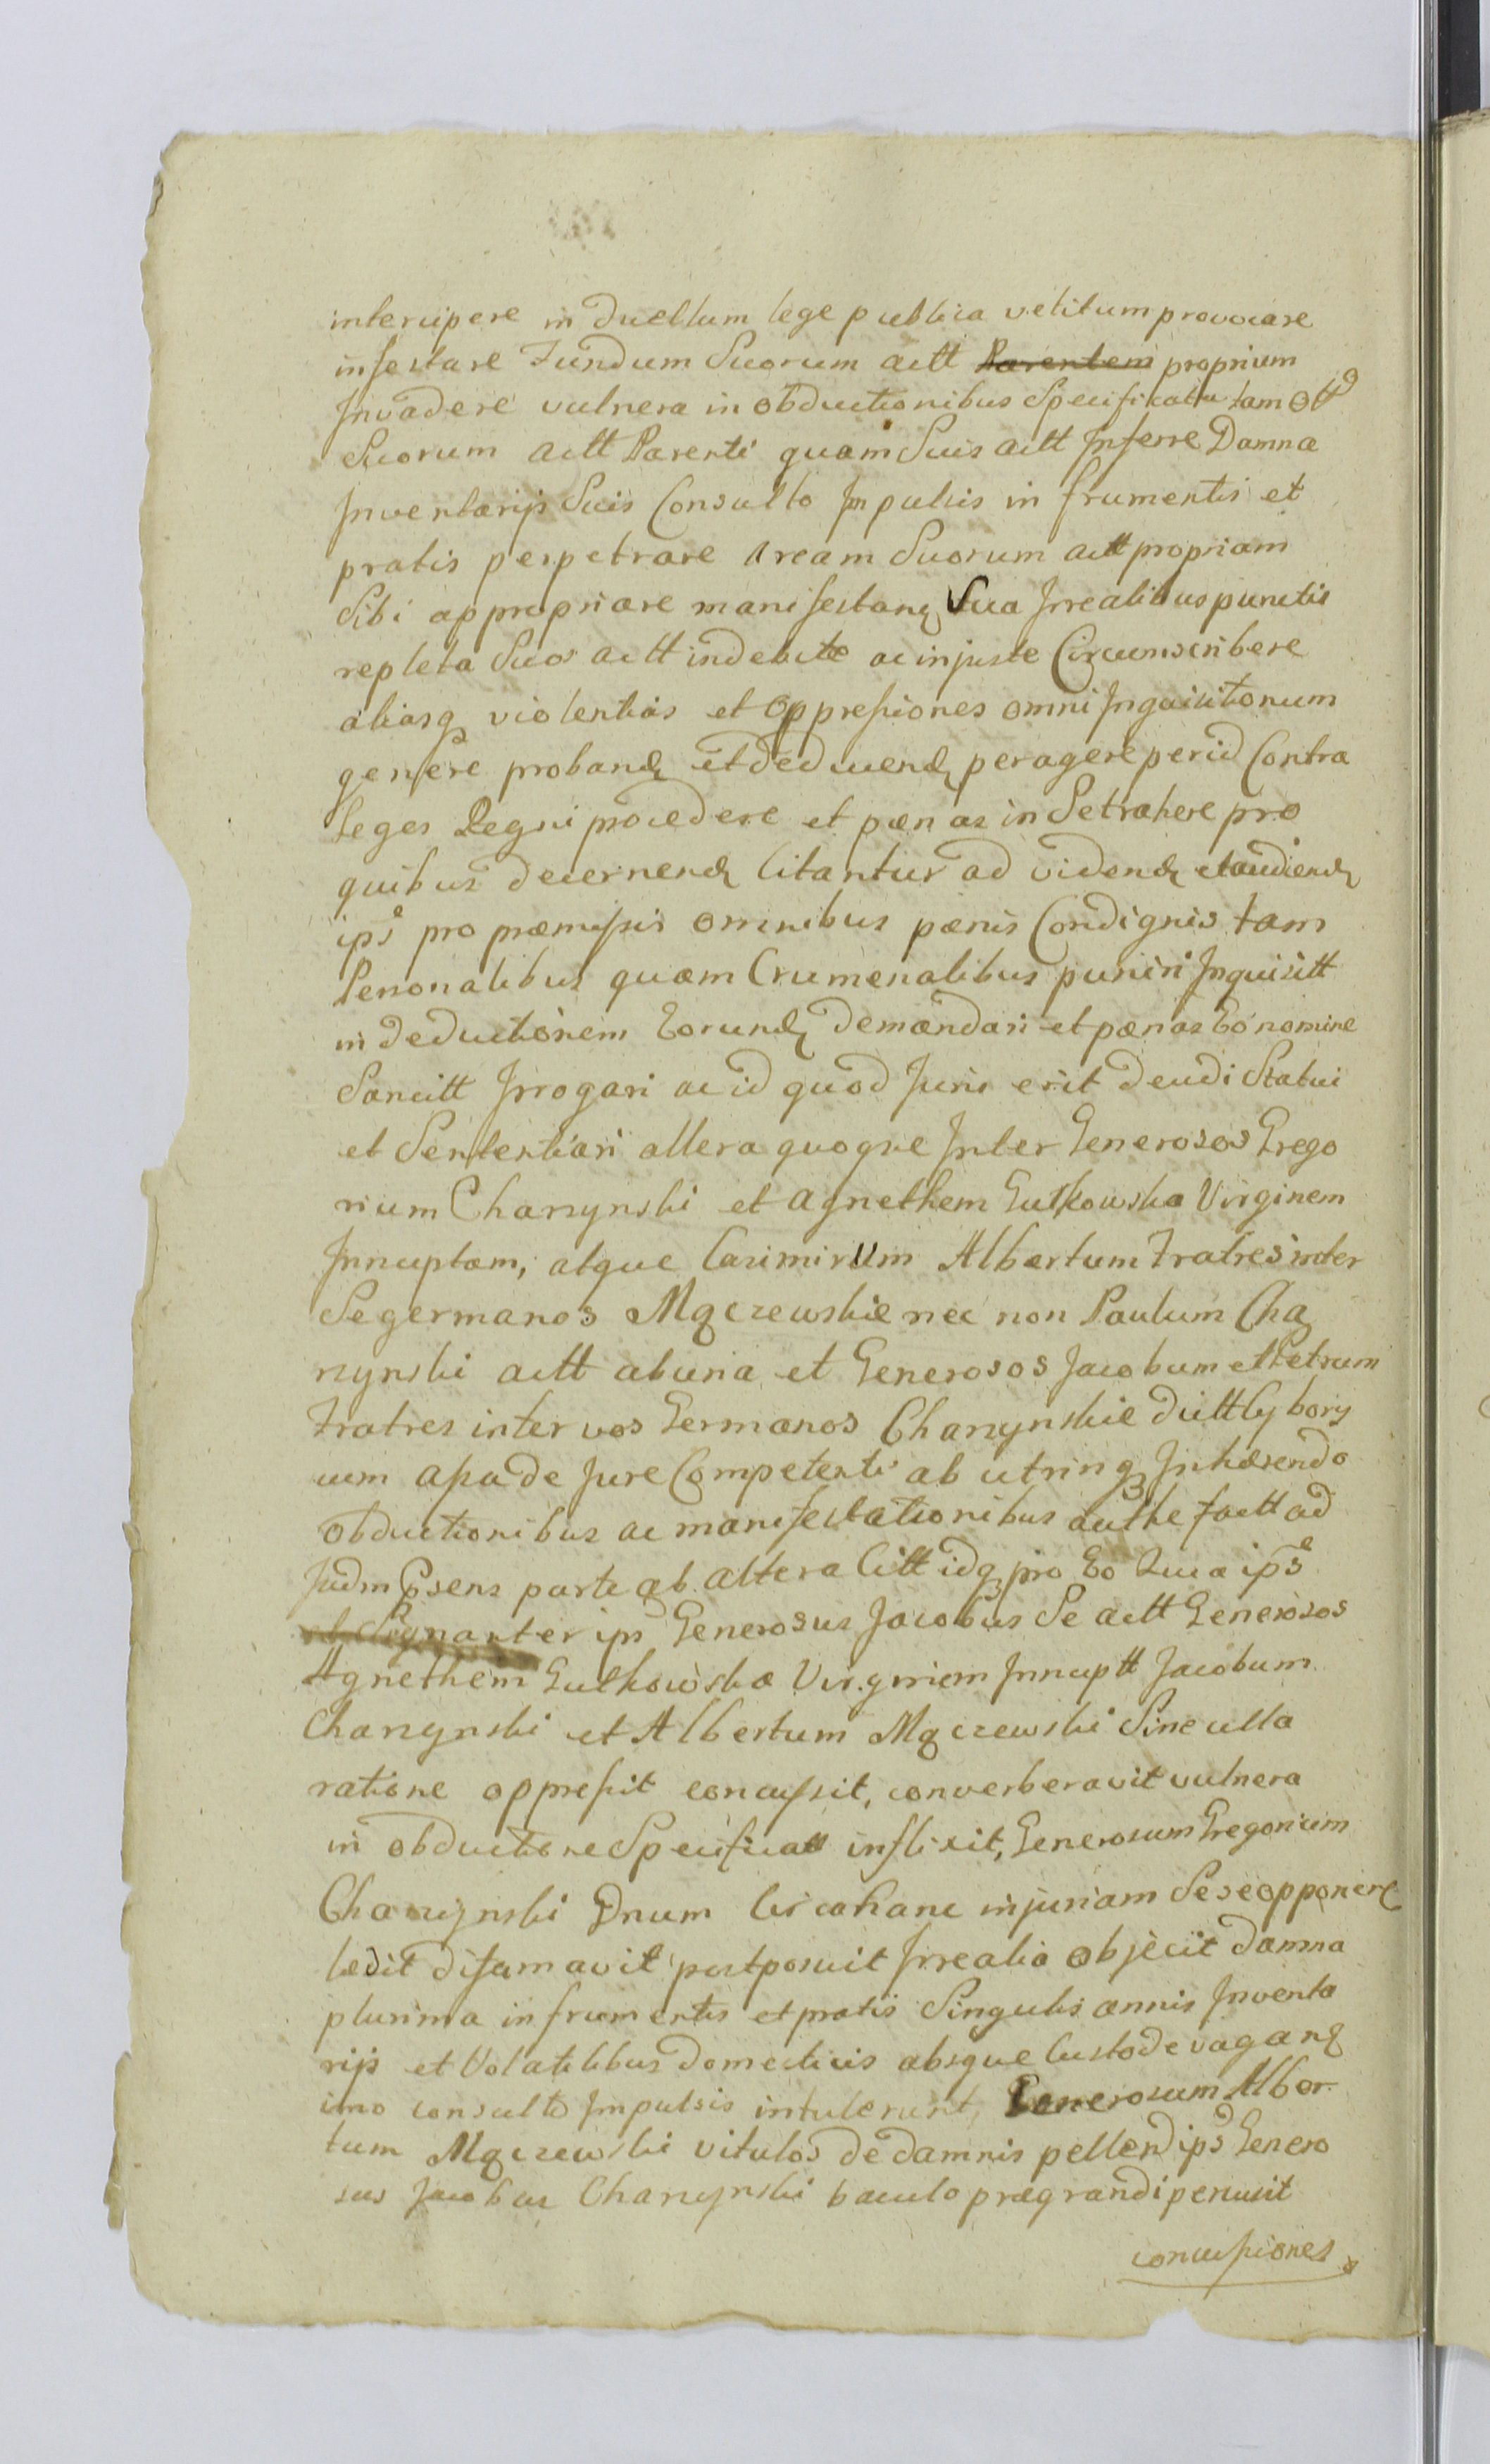 intercipere in Duellum lege publica vetitum provocare
infestare Fundum Suorum actt Parentem proprium
Invadere vulnera in obductionibus Specificata tam
Suorum actt Parenti quam Suis actt Inferre Damna
Inventarijs Suis Consulto Impulsis in frumentis et
pratis perpetrare Aream Suorum actt propriam
Sibi appropriare manifestanq Sua Irrealibus punctis
repleta Suos actt indebite ac injuste Circumscribere
aliasq violentias et Oppressiones omni Inquisitionum
genere proband et deducend peragere per id Contra
Leges Regni procedere et pœnas in Se trahere pro
quibus decernend Citantur ad vidend et audiend
ips pro præmissis omnibus pœnis Condignis tam
Personalibus quam Crumenalibus puniri Inquisitt
in deductionem Eorund demandari et pœnas Eo nomine
Sancitt Irrogari ac id quod Juris erit decidi Statui
et Sententiari altera quoque Inter Generosos Grego
rium Charzynski et Agnethem Gutkowska Virginem
Innuptam, atque Casimirum Albertum Fratres inter
Se germanos Mączewskie nec non Paulum Cha
rzynski actt ab una et Generosos Jacobum et Petrum
Fratres inter vos Germanos Charzynskie dictt Cybory
cum assa de Jure Competenti ab utrinq Inhærendo
obductionibus ac manifestationibus authe factt ad
Judm Psens parte ab altera Citt idq pro Eo Quia ips
et Signanter ips Generosus Jacobus Se actt Generosos
Agnethem Gutkowska Virginem Innuptt Jacobum
Charzynski et Albertum Mączewski Sine ulla
ratione oppressit concussit, converberavit vulnera
in obductione Specificatt inflixit, Generosum Gregorium
Charzynski Dnum circa hanc injuriam Sese opponere
lædit difamavit postposuit Irrealia objecit damna
plurima in frumentis et pratis Singulis annis Inventa
rijs et Volatilibus domesticis absque Custode vagan
imo consulto Impulsis intulerunt, Generosum Alber
tum Mączewski vitulos de damnis pellend ips Genero
sus Jacobus Charzynski baculo prægrandi percusit
concussiones